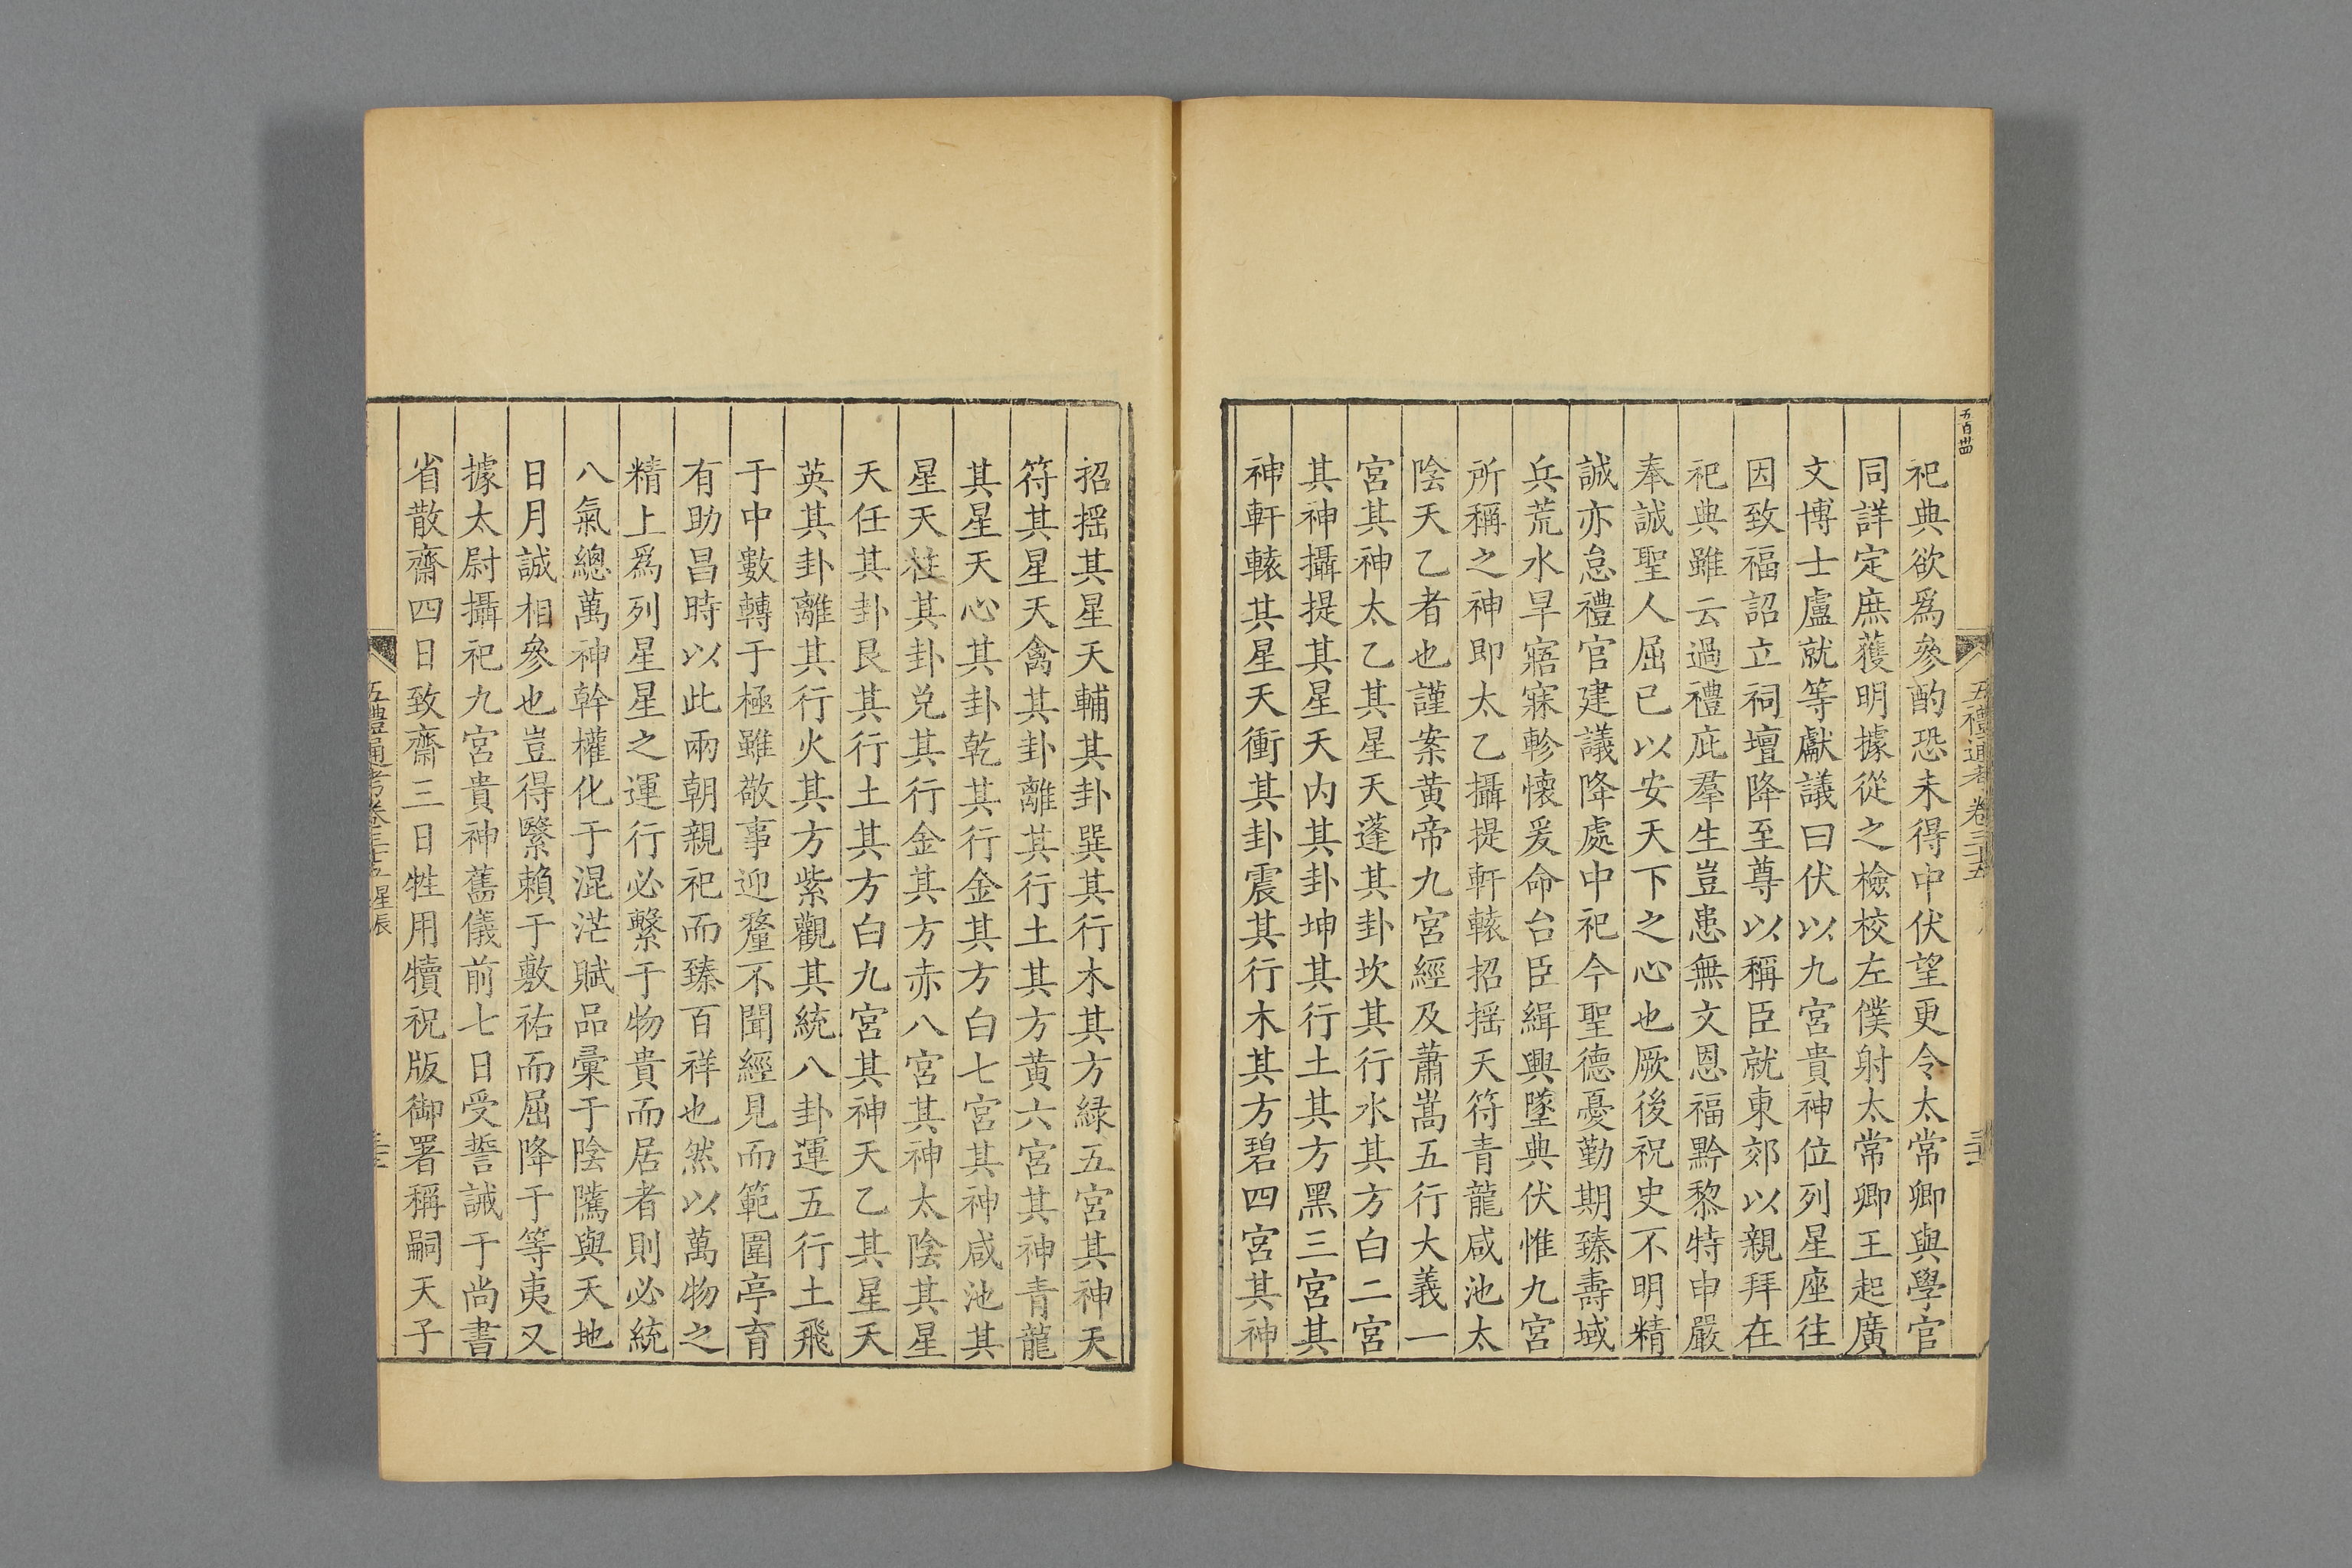 五百卌
五禮通考卷三十五
祀典欲爲參酌恐未得中伏望更令太常卿與學官
同詳定庶獲明據從之檢校左僕射太常卿王起廣
文博士盧就等獻議曰伏以九宮貴神位列星座往
因致福詔立祠壇降至尊以稱臣就東郊以親拜在
祀典雖云過禮庇羣生豈患無文思福黔黎特申嚴
奉誠聖人屈已以安天下之心也厥後祝史不明精
誠亦怠禮官建議降處中祀今聖德憂勤期臻壽域
兵荒水旱寤寐軫懷爰命台臣緝興墜典伏惟九宮
所稱之神即太乙攝提軒轅招搖天符青龍咸池太
陰天乙者也謹案黄帝九宮經及蕭嵩五行大義一
宮其神太乙其星天蓬其卦坎其行水其方白二宮
其神攝提其星天内其卦坤其行土其方黑三宮其
神軒轅其星天衝其卦震其行木其方碧四宮其神
招搖其星天輔其卦巽其行木其方緑五宮其神天
符其星天禽其卦離其行土其方黄六宮其神青龍
其星天心其卦乾其行金其方白七宮其神咸池其
星天柱其卦兑其行金其方赤八宮其神太陰其星
天任其卦艮其行土其方白九宮其神天乙其星天
英其卦離其行火其方紫觀其統八卦運五行土飛
于中數轉于極雖敬事迎釐不聞經見而範圍亭育
有助昌時以此兩朝親祀而臻百祥也然以萬物之
精上爲列星星之運行必繫于物貴而居者則必統
八氣總萬神幹權化于混茫賦品彙于陰隲與天地
日月誠相參也豈得繄賴于敷祐而屈降于等夷又
據太尉攝祀九宮貴神舊儀前七日受誓誡于尚書
省散齋四日致齋三日牲用犢祝版御署稱嗣天子
五禮通考卷三十五星辰